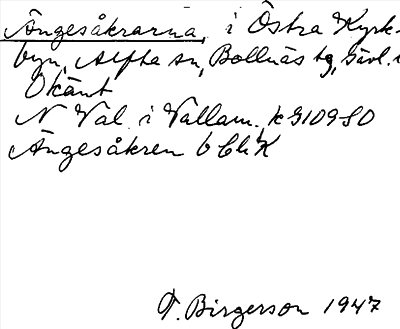 Ängesåkrarna, i Östra Kyrk-
byn, Alfta sn, Bollnäs tg, Gävl. l
Okänt
N Val i Vallam. k 9109 SO
Ängesåkren b
T. Birgerson 1947